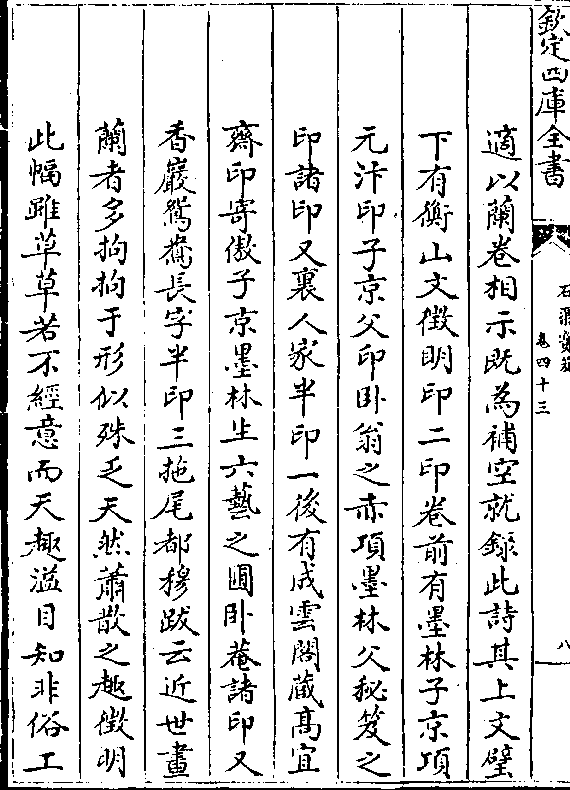 欽定四庫全書
石渠寳笈
卷四十三
八
適以蘭卷相示既為補空就録此詩其上文璧
下有衡山文徴明印二印卷前有墨林子京項
元汴印子京父印卧翁之赤項墨林父秘笈之
印諸印又裏人家半印一後有成雲閣蔵髙宜
齋印寄傲子京墨林生六藝之圃卧菴諸印又
香巖鴛鴦長字半印三拖尾都穆跋云近世畫
蘭者多拘拘于形似殊乏天然蕭散之趣徴明
此幅雖草草若不經意而天趣溢目知非俗工